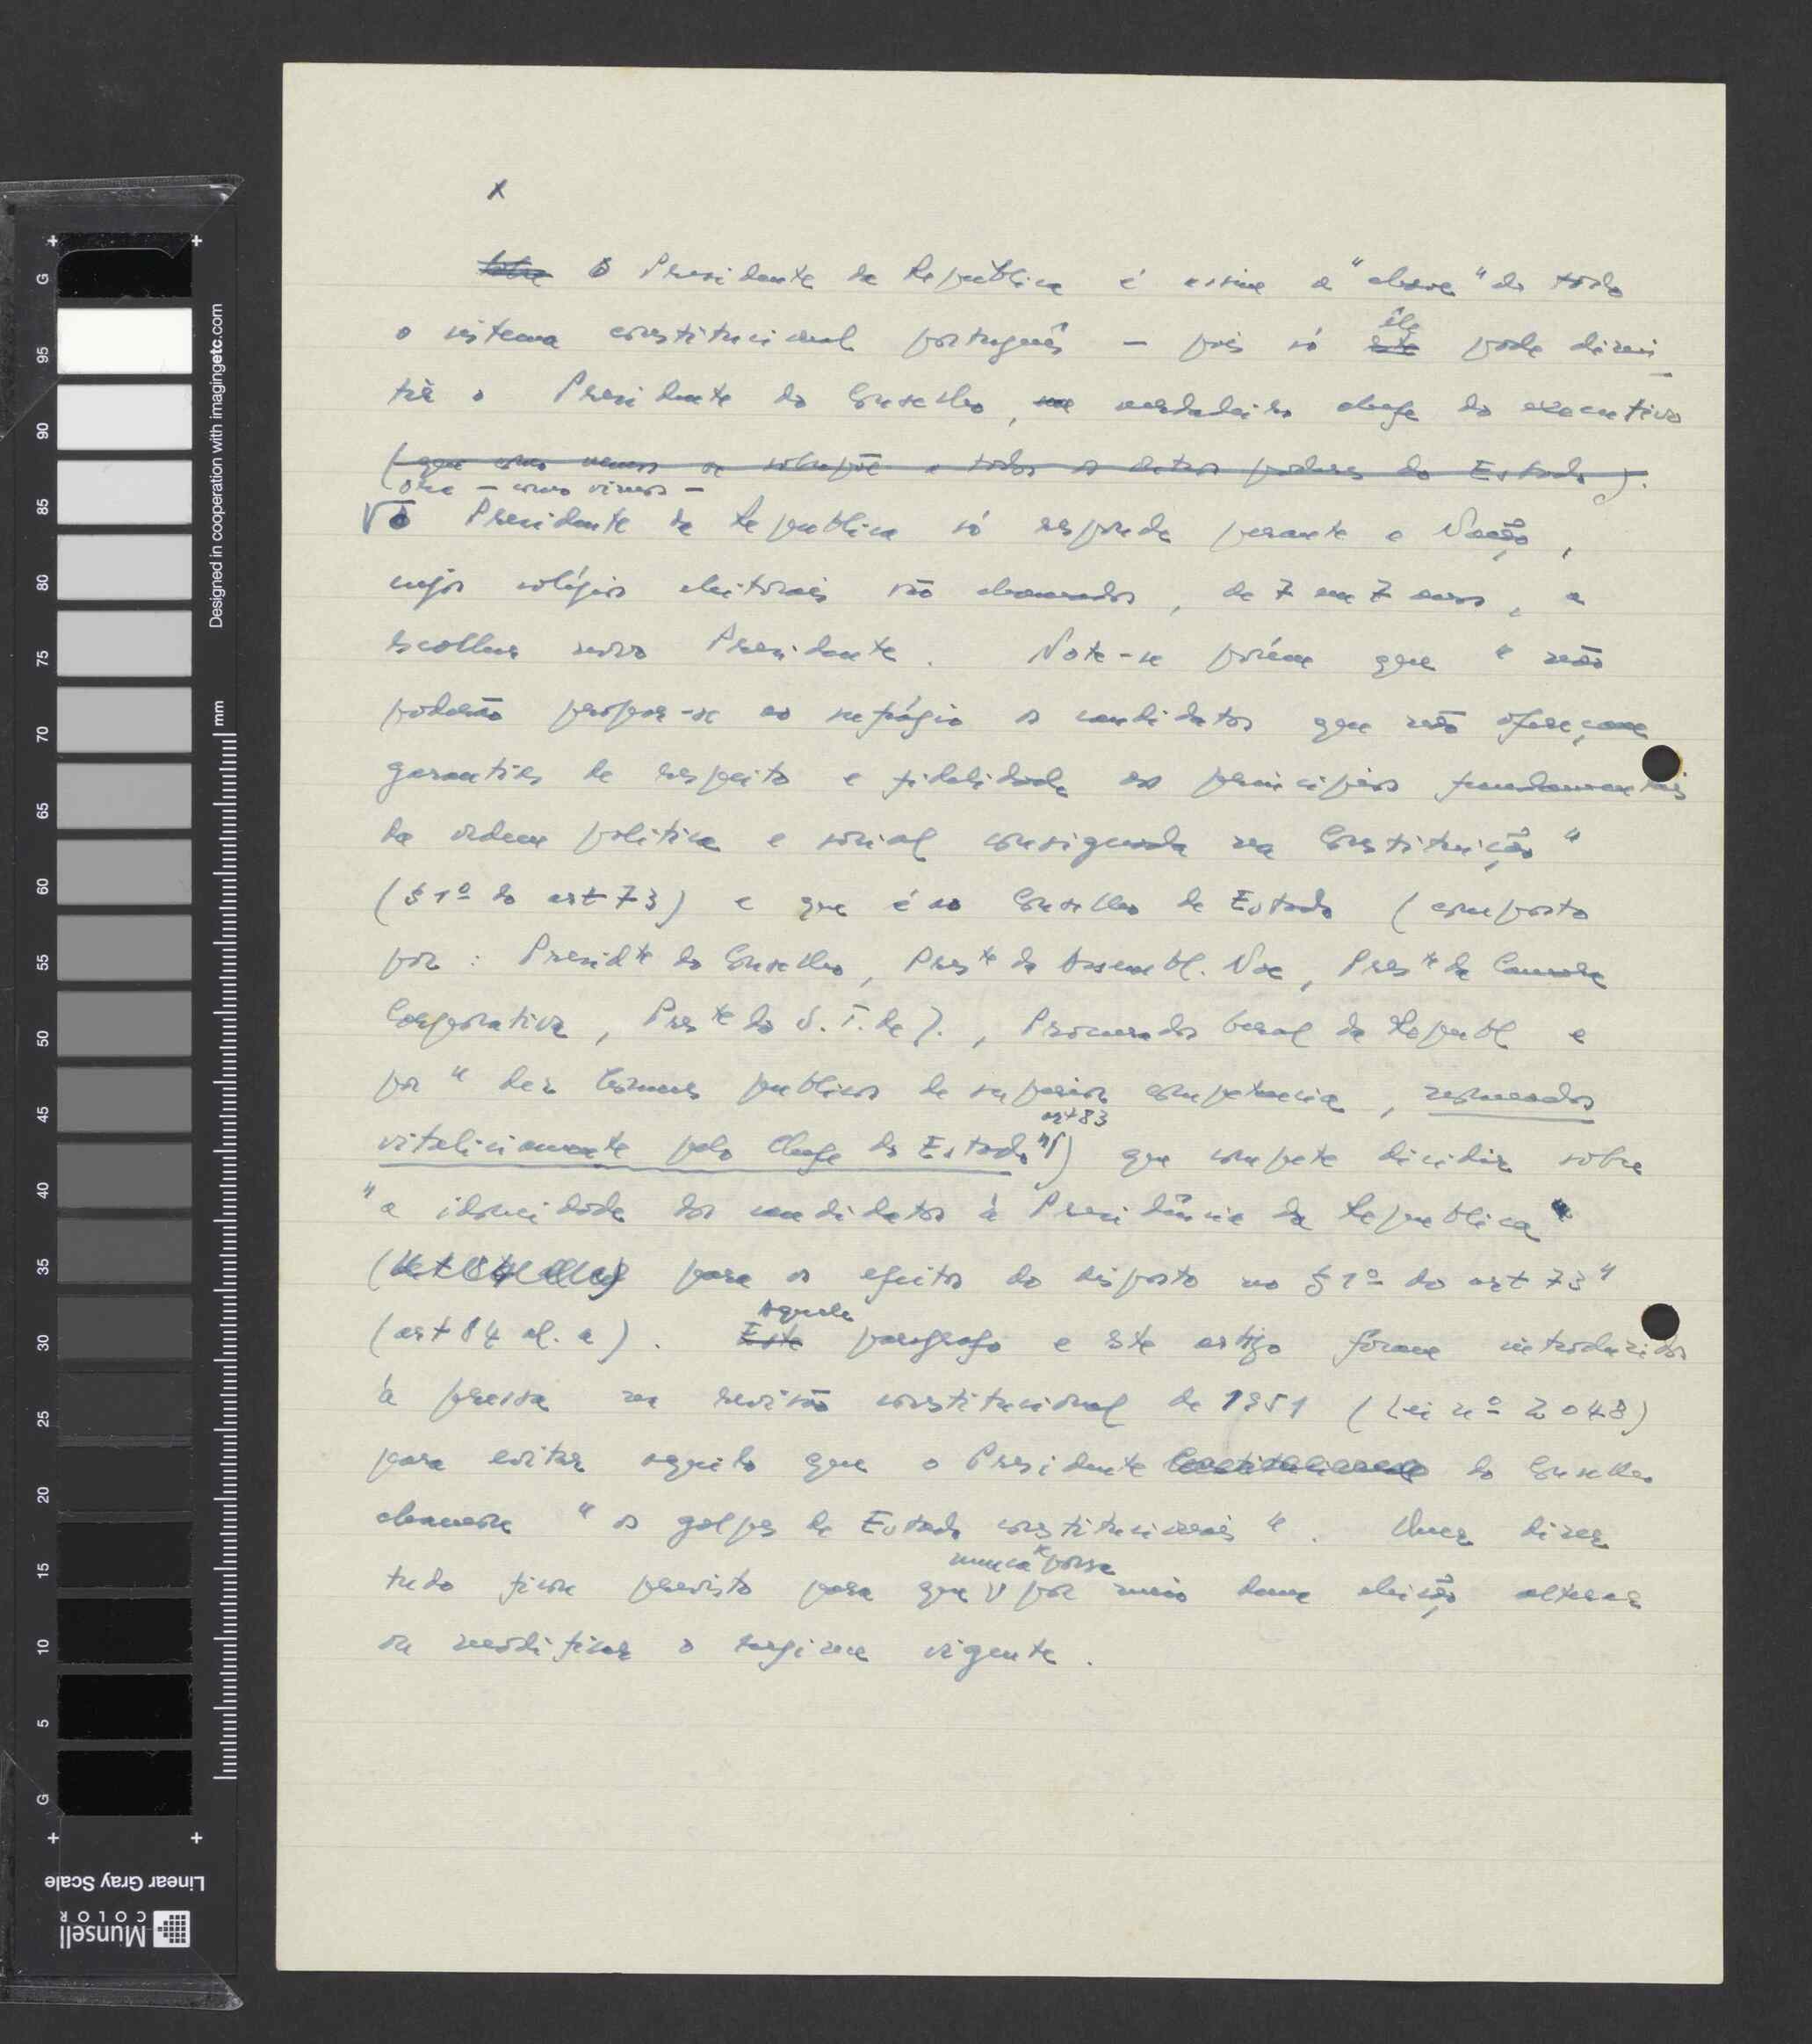 x
Sobre O Presidente da República é assim a "chave" de todo
o sistema constitucional português – pois só êste êle pode demi-
tir o Presidente do Conselho, verdadeiro chefe do executivo
(que como vemos se sobrepõe a todos os outros poderes do Estado).
Ora – como vimos –
o Presidente da Republica só responde perante a Nação,
cujos colégios eleitorais são chamados, de 7 em 7 anos, a
escolher novo Presidente. Note-se porém que "não
poderão propor-se ao sufrágio os candidatos que não ofereçam
garantias de respeito e fidelidade aos principios fundamentais
da ordem politica e social consignada na Constituição"
(§ 1º do art 73) e que é ao Conselho de Estado (composto
por: Presidte do Conselho, Preste da Assembl. Nac, Preste da Camara
Corporativa, Preste do S.T. de J., Procurador Geral da Republ e
por "dez homens publicos de superior competencia, nomeados
vitaliciamente pelo Chefe do Estado" art 83) que compete decidir sobre
"a idoneidade dos candidatos à Presidência da Republica
para os efeitos do disposto no § 1º do art 73"
(art 84 al. a). Este Aquele paragrafo e este artigo foram introduzidos
à pressa na revisão constitucional de 1951 (Lei nº 2048)
para evitar aquilo que o Presidente do Conselho
chamara "os golpes de Estado constitucionais". Quer dizer
tudo ficou previsto para que nunca se possa por meio duma eleição alterar
ou modificar o regime vigente.
Designed in cooperation with imagingetc.com
mm
G
95
90
85
80
75
70
65
60
55
50
45
40
35
30
25
20
15
10
5
G
Linear Gray Scale
Munsell
COLOR